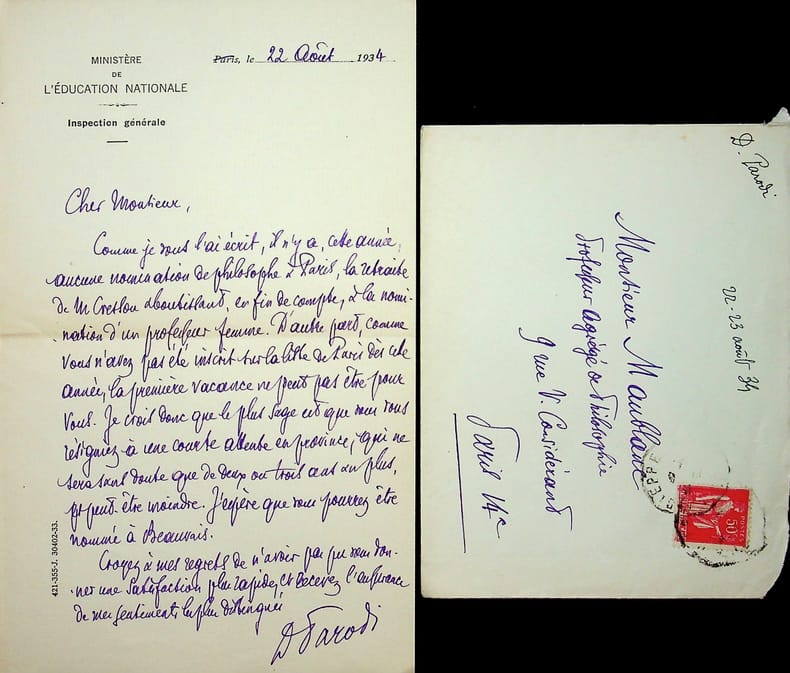 MINISTÈRE
DE
L'ÉDUCATION NATIONALE
Inspection générale
Paris, le 22 Août 1934
Cher Monsieur,
Comme je vous l'ai écrit, il n'y a, cette année,
aucune nomination de philosophe à Paris, la retraite
de M Cresson aboutissant, en fin de compte, à la nomi-
nation d'un professeur femme. D'autre part, comme
vous n'avez pas été inscrit sur la liste de Paris dès cette
année, la première vacance ne peut pas être pour
vous. Je crois donc que le plus sage est que vous vous
résigniez à une courte attente en province, qui ne
sera sans doute que de deux ou trois ans au plus,
et peut être moindre. J'espère que vous pourrez être
nommé à Beauvais.
Croyez à mes regrets de n'avoir pas pu vous don-
ner une satisfaction plus rapide, et recevez l'assurance
de mes sentiments les plus distingués
D Parodi
421-355-J. 30402-33.
D. Parodi
22-23 août 34
Monsieur Maublanc
Professeur Agrégé de Philosophie
9 rue V. Considérant
Paris 14e
DIEPPE
POSTES
50c